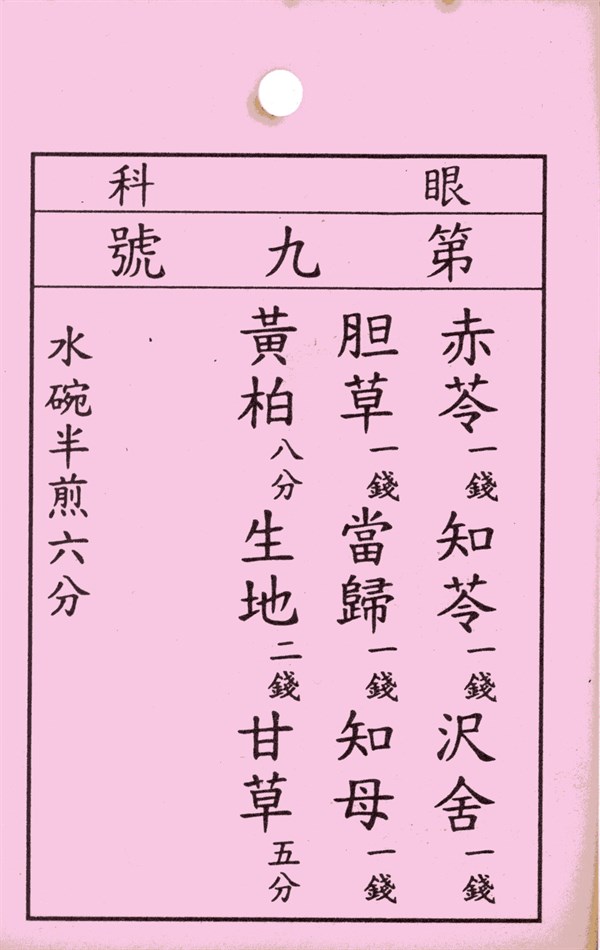 眼科
第九號
赤苓一錢知苓一錢沢舍一錢
胆草一錢當歸一錢知母一錢
黃柏八分生地二錢甘草五分
水碗半煎六分